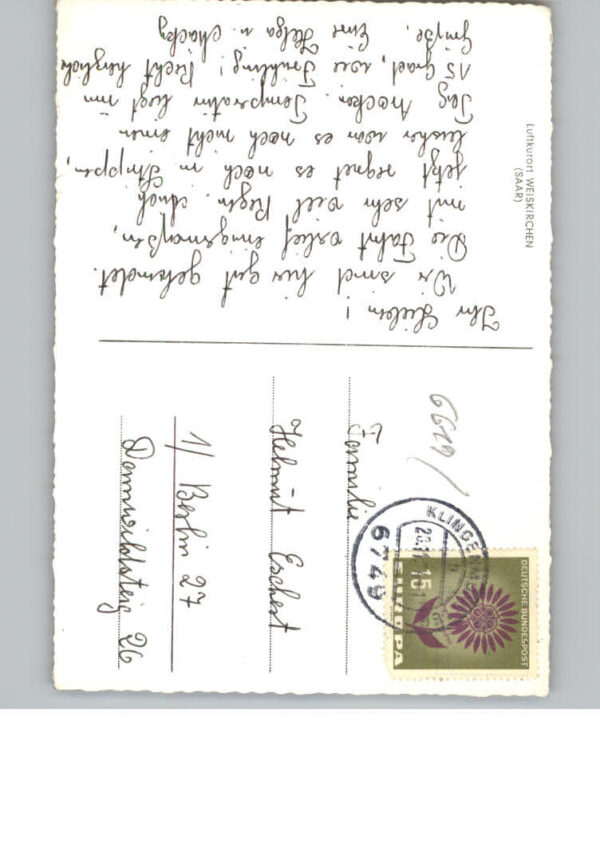 Luftkurort WEISKIRCHEN
(SAAR)
Ihr Lieben!
Wir sind hier gut gelandet.
Die Fahrt verlief einigermaßen,
mit sehr viel Regen. Auch
jetzt regnet es noch in Strippen,
bisher war es noch nicht einen
Tag trocken. Temperatur liegt um
15 Grad, wie Frühling! Recht herzliche
Grüße, Eure Helga u. Macky
6619/
Familie
Helmut Eschert
1/ Berlin 27
Damwildsteig 26
KLINGEN
6749
15
DEUTSCHE BUNDESPOST
EUROPA